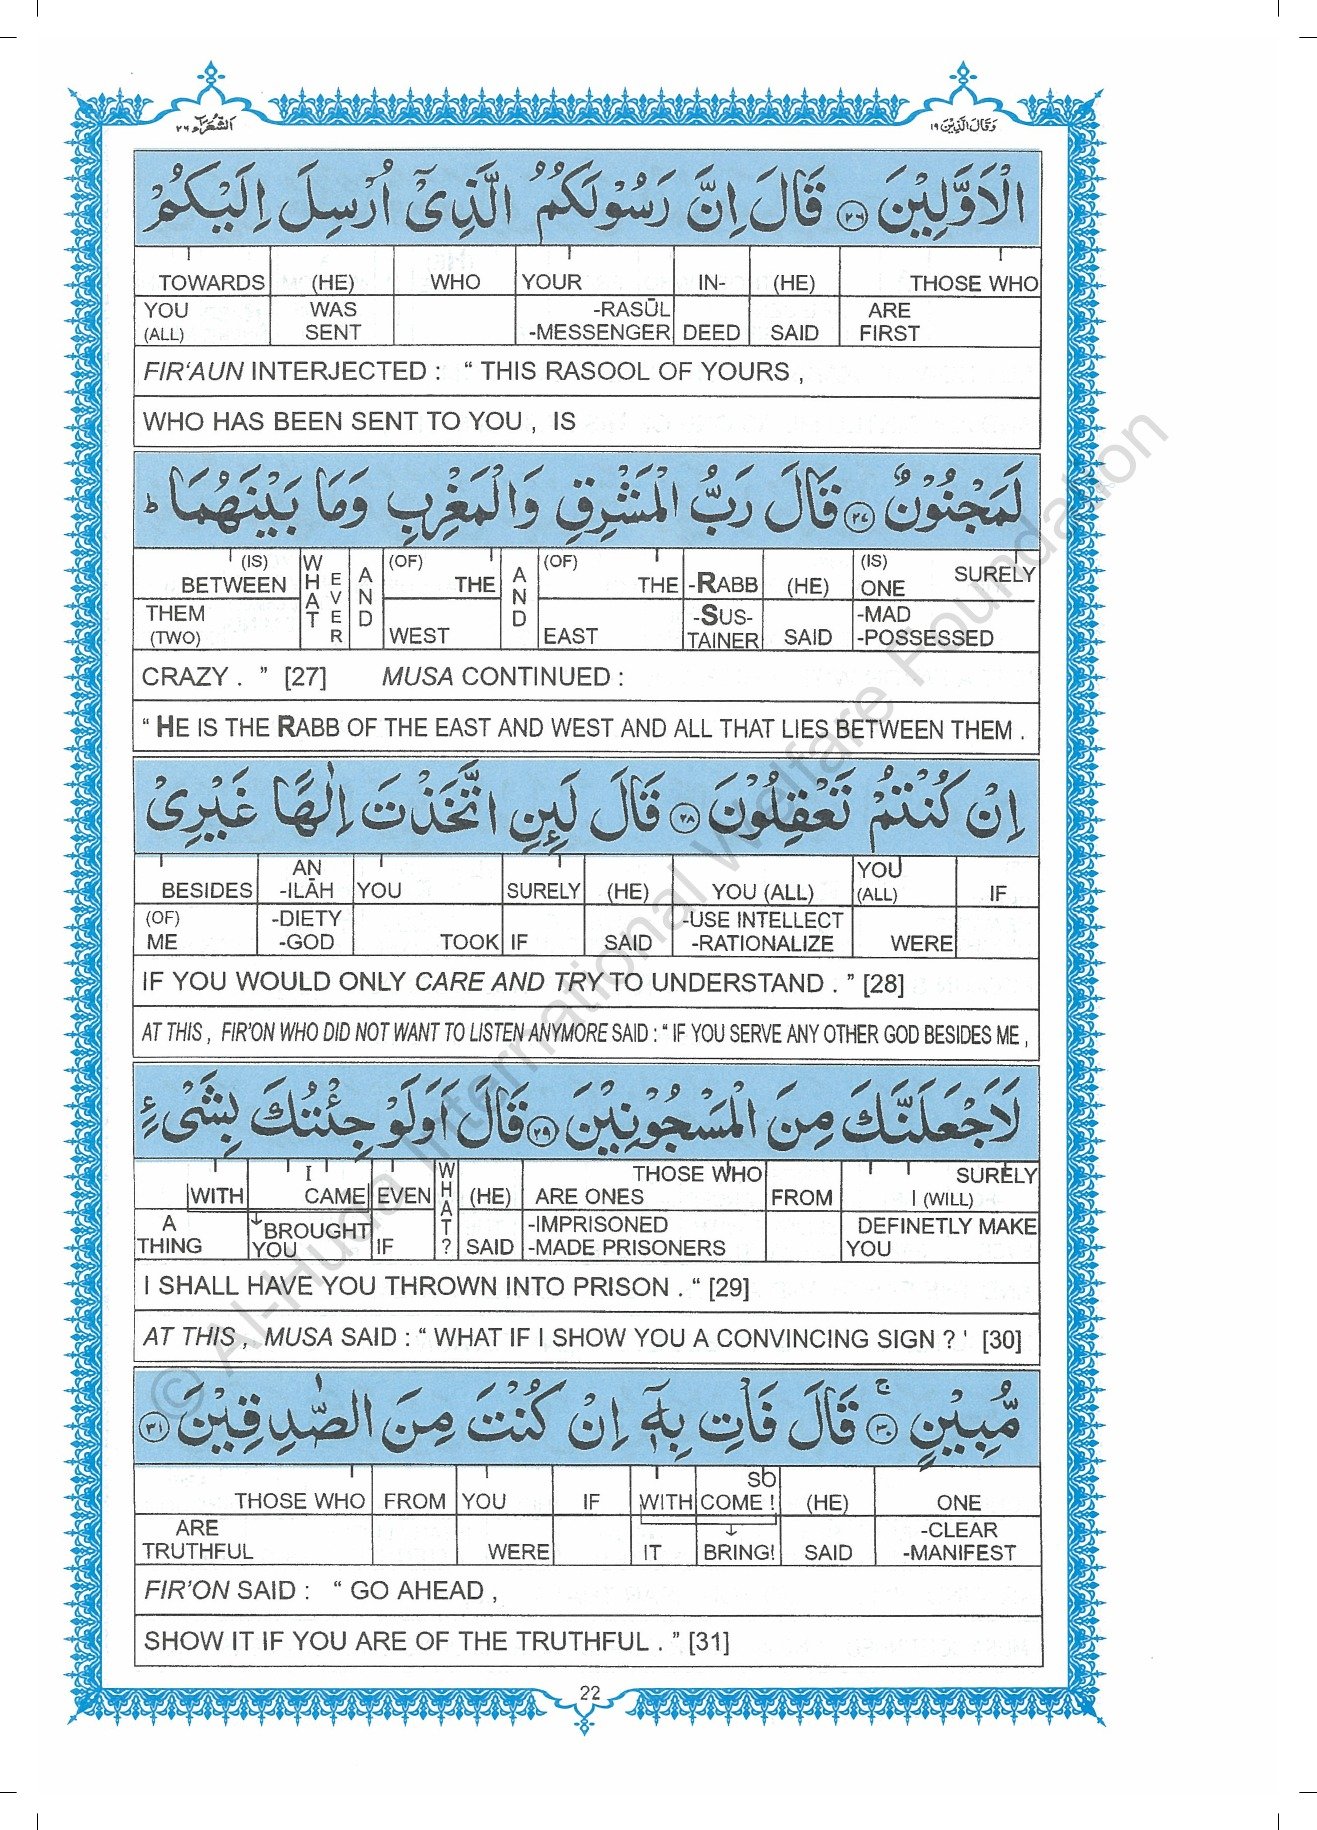 الشعراء ٢٦
وقال الذين ١٩
الْاَوَّلِيْنَ ﴿٢٦﴾ قَالَ اِنَّ رَسُوْلَكُمُ الَّذِيْٓ اُرْسِلَ اِلَيْكُمْ
TOWARDS (HE) WHO YOUR IN- (HE) THOSE WHO
YOU WAS -RASŪL ARE
(ALL) SENT -MESSENGER DEED SAID FIRST
FIR‘AUN INTERJECTED : “ THIS RASOOL OF YOURS ,
WHO HAS BEEN SENT TO YOU , IS
لَمَجْنُوْنٌ ﴿٢٧﴾ قَالَ رَبُّ الْمَشْرِقِ وَالْمَغْرِبِ وَمَا بَيْنَهُمَا ؕ
(IS) WHAT EVER AND (OF) AND (OF) (IS) SURELY
BETWEEN THE THE -RABB (HE) ONE
THEM -SUS- -MAD
(TWO) WEST EAST TAINER SAID -POSSESSED
CRAZY . ” [27] MUSA CONTINUED :
“ HE IS THE RABB OF THE EAST AND WEST AND ALL THAT LIES BETWEEN THEM .
اِنْ كُنْتُمْ تَعْقِلُوْنَ ﴿٢٨﴾ قَالَ لَىِٕنِ اتَّخَذْتَ اِلٰهًا غَيْرِيْ
AN YOU
BESIDES -ILĀH YOU SURELY (HE) YOU (ALL) (ALL) IF
(OF) -DIETY -USE INTELLECT
ME -GOD TOOK IF SAID -RATIONALIZE WERE
IF YOU WOULD ONLY CARE AND TRY TO UNDERSTAND . ” [28]
AT THIS , FIR’ON WHO DID NOT WANT TO LISTEN ANYMORE SAID : “ IF YOU SERVE ANY OTHER GOD BESIDES ME ,
لَاَجْعَلَنَّكَ مِنَ الْمَسْجُوْنِيْنَ ﴿٢٩﴾ قَالَ اَوَلَوْ جِئْتُكَ بِشَيْءٍ
I WHAT? THOSE WHO SURELY
WITH CAME EVEN (HE) ARE ONES FROM I (WILL)
A BROUGHT -IMPRISONED DEFINETLY MAKE
THING YOU IF SAID -MADE PRISONERS YOU
I SHALL HAVE YOU THROWN INTO PRISON . “ [29]
AT THIS , MUSA SAID : “ WHAT IF I SHOW YOU A CONVINCING SIGN ? ' [30]
مُّبِيْنٍ ﴿٣٠﴾ۚ قَالَ فَاْتِ بِهٖٓ اِنْ كُنْتَ مِنَ الصّٰدِقِيْنَ ﴿٣١﴾
SO
THOSE WHO FROM YOU IF WITH COME ! (HE) ONE
ARE ↓ -CLEAR
TRUTHFUL WERE IT BRING! SAID -MANIFEST
FIR’ON SAID : “ GO AHEAD ,
SHOW IT IF YOU ARE OF THE TRUTHFUL . ” [31]
22
© Al-Huda International Welfare Foundation